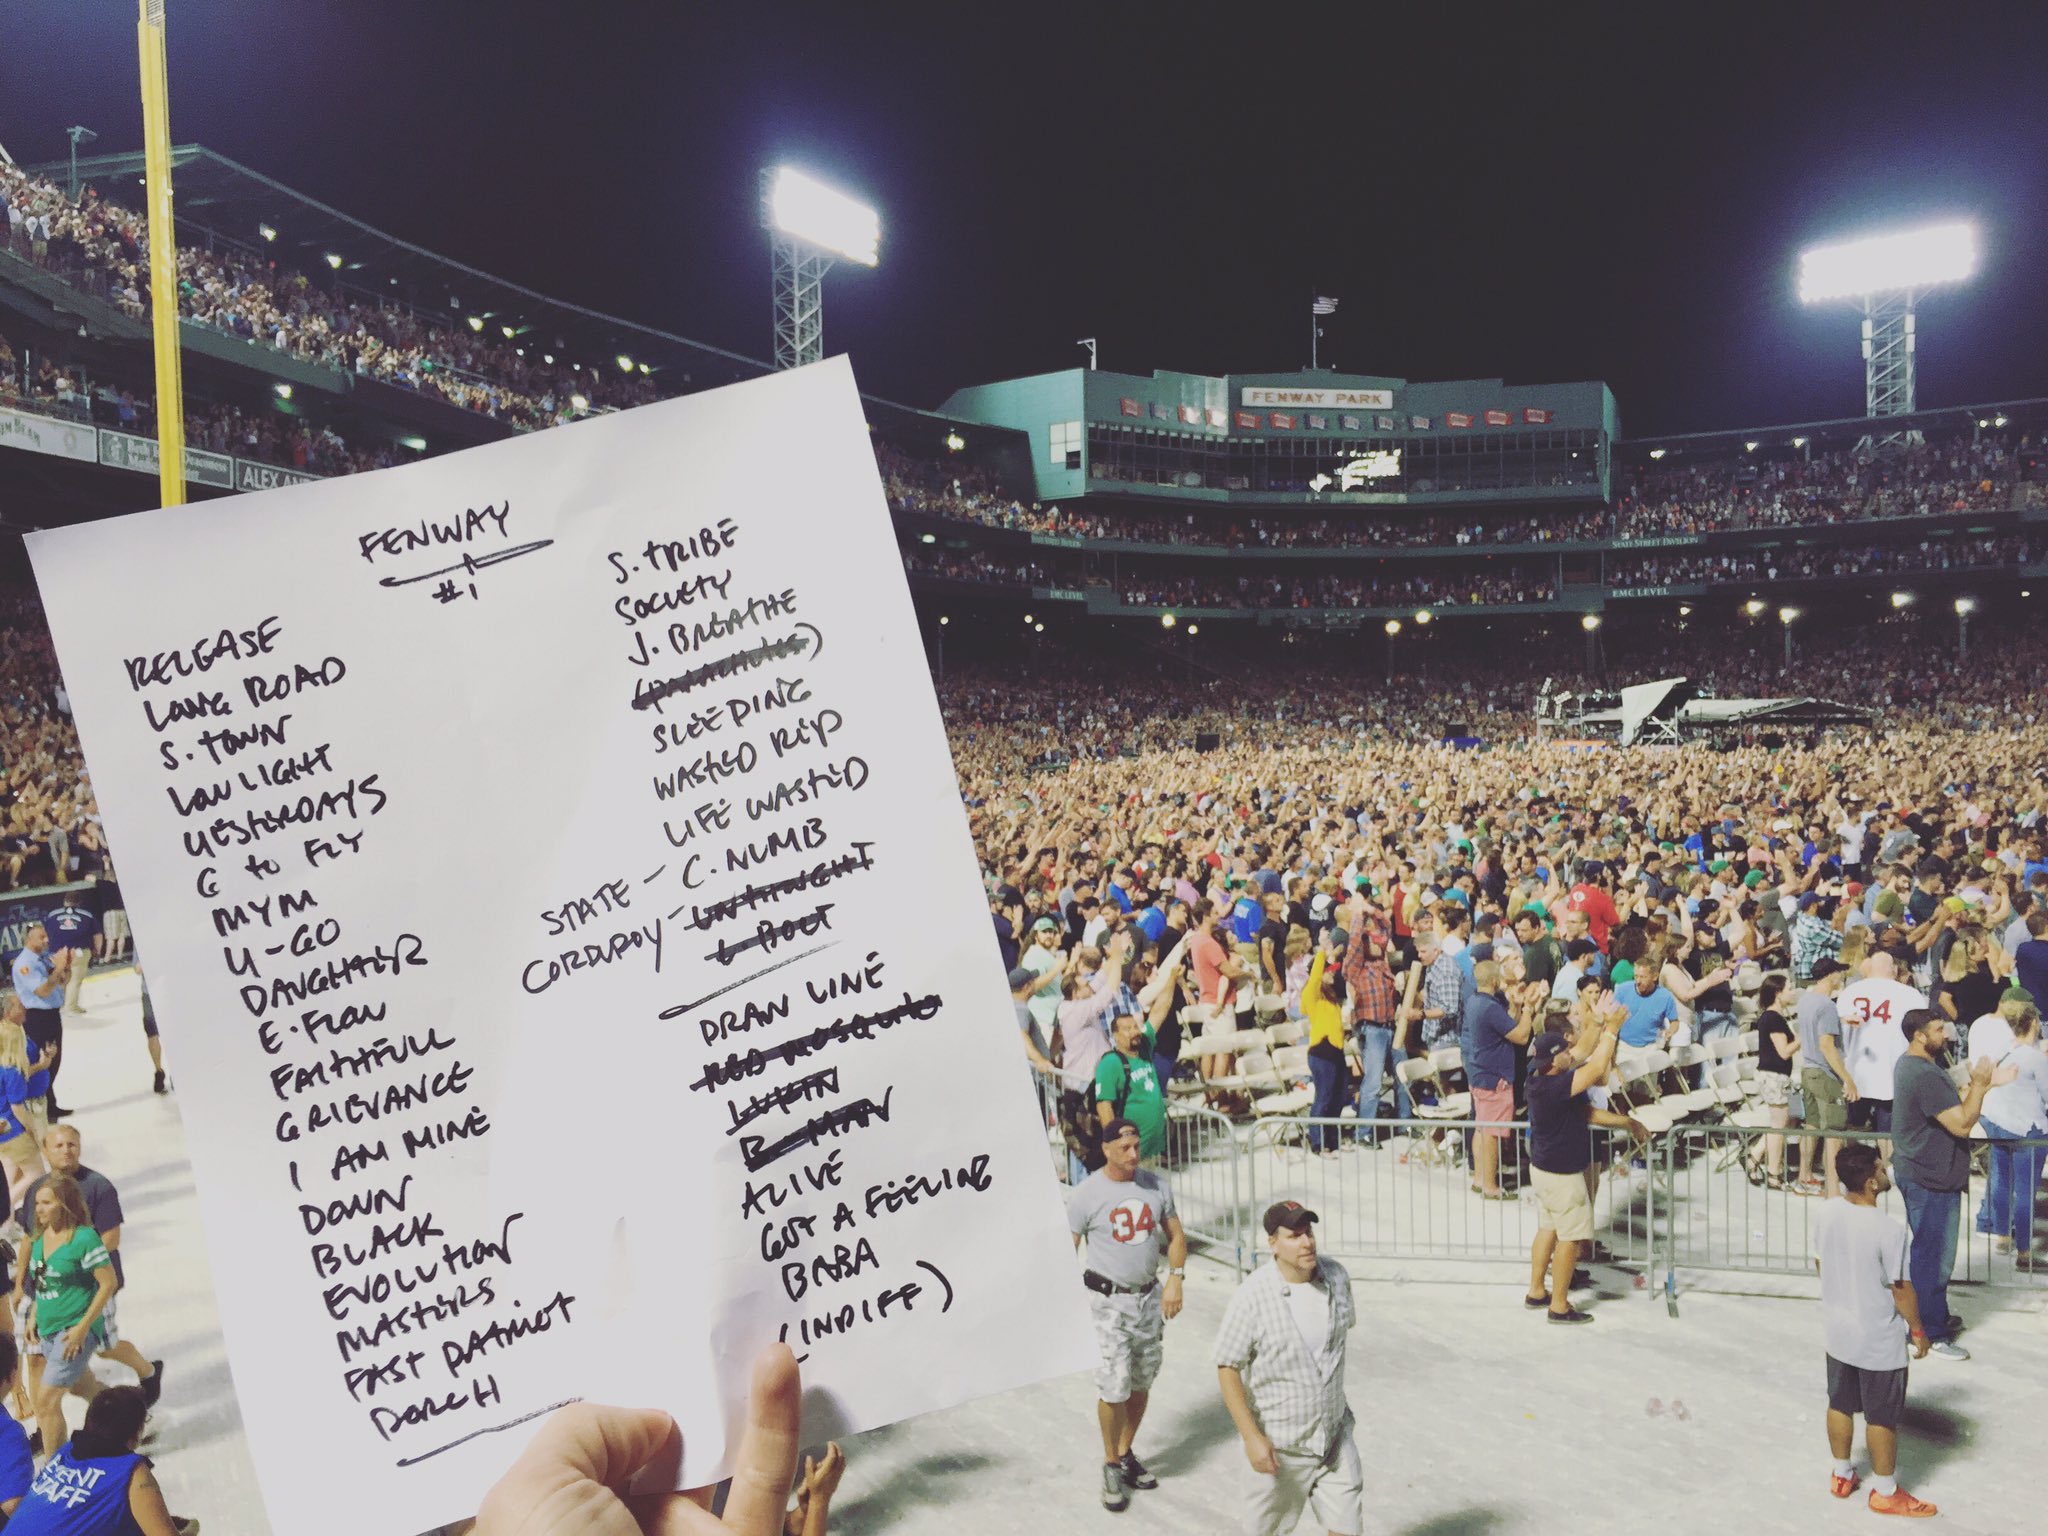 FENWAY
#1
RELEASE
LONG ROAD
S. TOWN
LOW LIGHT
YESTERDAYS
G to FLY
MYM
U-GO
DAUGHTER
E. FLOW
FAITHFULL
GRIEVANCE
I AM MINE
DOWN
BLACK
EVOLUTION
MASTERS
FAST PATRIOT
PORCH
S. TRIBE
SOCIETY
J. BREATHE
(parachutes)
SLEEPING
WASTED REP
LIFE WASTED
STATE - C. NUMB
CORDUROY - UNTHOUGHT
L BOLT
DRAW LINE
RED MOSQUITO
LUKIN
B-MAN
ALIVE
GOT A FEELING
BABA
(INDIFF)
FENWAY PARK
STATE STREET PAVILION
EMC LEVEL
EMC LEVEL
ALEX AN
34
34